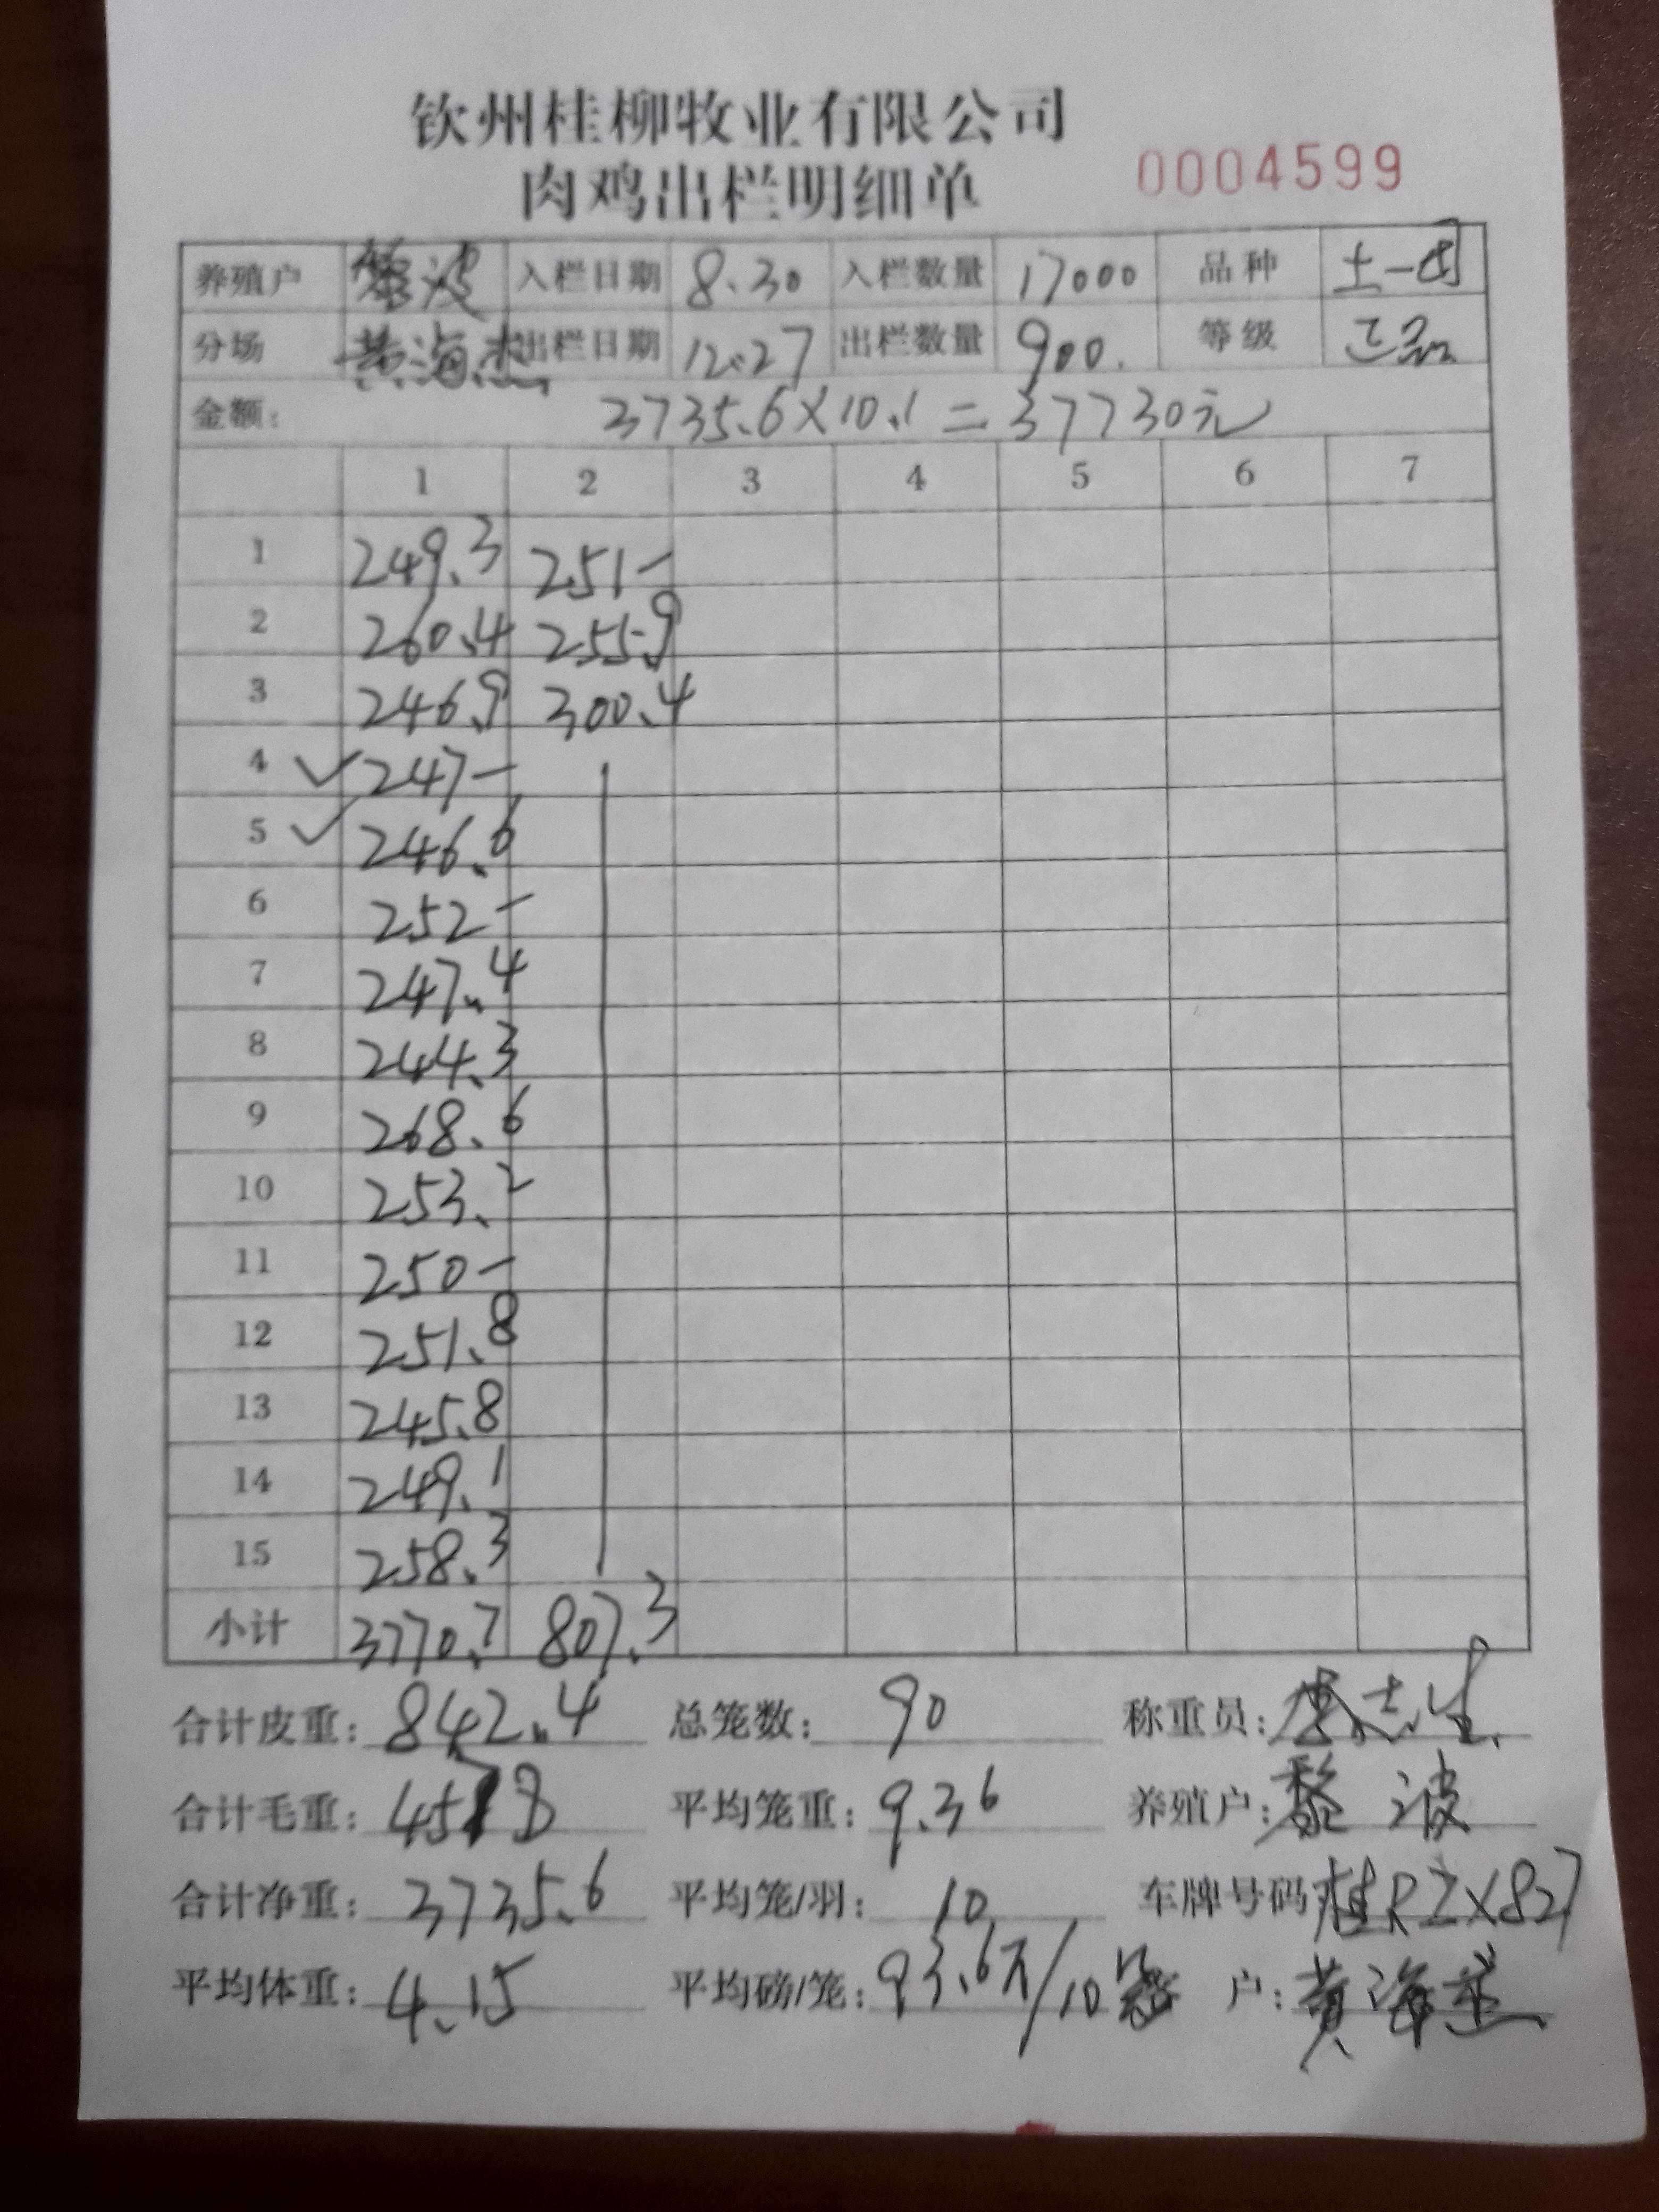 钦州桂柳牧业有限公司
肉鸡出栏明细单 0004599
养殖户 黎波 入栏日期 8.30 入栏数量 17000 品种 土一
分场 黄海 出栏日期 12.27 出栏数量 900. 等级 正品
金额: 3735.6×10.1=37730元
1 2 3 4 5 6 7
1 249.3 251-
2 260.4 255.9
3 246.9 300.4
4 ✓ 247-
5 ✓ 246.6
6 252-
7 247.4
8 244.3
9 268.6
10 253.2
11 250-
12 251.8
13 245.8
14 249.1
15 258.3
小计 3770.7 807.3
合计皮重: 842.4 总笼数: 90 称重员: 志
合计毛重: 4578 平均笼重: 9.36 养殖户: 黎波
合计净重: 3735.6 平均笼/羽: 10 车牌号码 桂RZX827
平均体重: 4.15 平均磅/笼: 93.6斤/10 户: 黄海